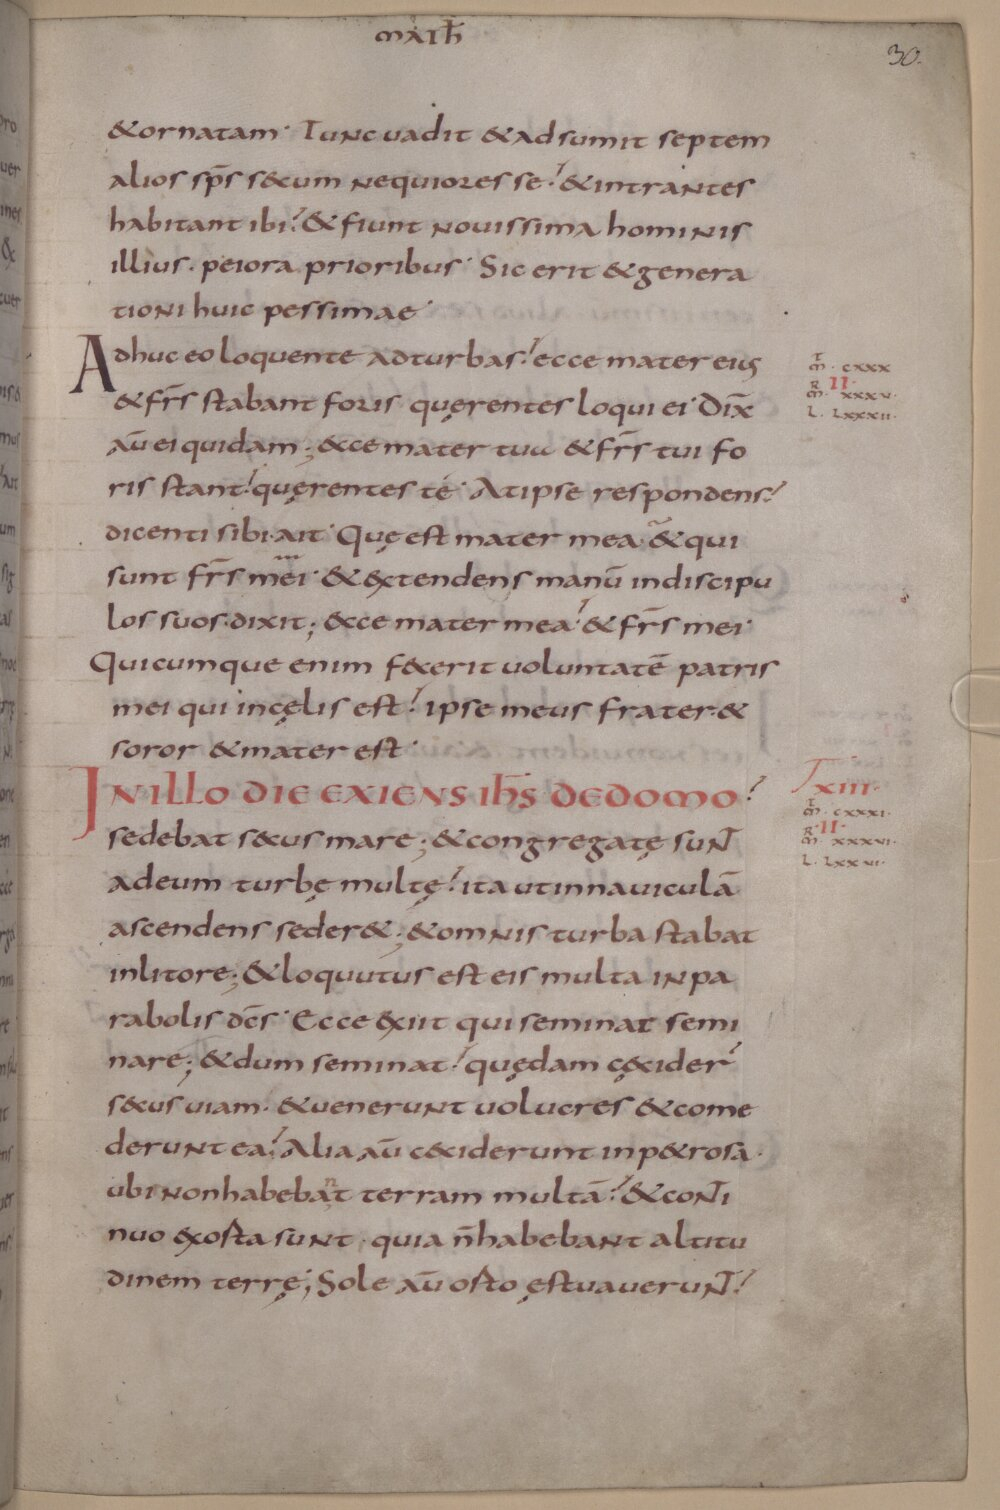 MATH
30.
& ornatam· Tunc uadit & adsumit septem
alios sp̄s secum nequiores se· & intrantes
habitant ibi· & fiunt nouissima hominis
illius· peiora prioribus· Sic erit & genera
tioni huic pessimae·
Adhuc eo loquente ad turbas· ecce mater eius
& fr̄s stabant foris quęrentes loqui ei· Dix̄
aū ei quidam; ecce mater tua & fr̄s tui fo
ris stant· quęrentes te· At ipse respondens·
dicenti sibi· ait· Quę est mater mea & qui
sunt fr̄s mei· & extendens manū in discipu
los suos· dixit; ecce mater mea· & fr̄s mei·
Quicumque enim fecerit uoluntatē patris
mei qui in cęlis est· ipse meus frater· &
soror & mater est·
IN ILLO DIE EXIENS IH̄S DE DOMO·
sedebat secus mare; & congregatę sunt
ad eum turbę multę· ita ut in nauiculā
ascendens seder&; & omnis turba stabat
in litore; & loquutus est eis multa in pa
rabolis dc̄s· Ecce exiit qui seminat semi
nare; & dum seminat· quędam cęcider̄
secus uiam· & uenerunt uolucres & come
derunt ea· Alia aū ceciderunt in petrosa·
ubi non habebant terram multā· & conti
nuo exorta sunt· quia n̄ habebant altitu
dinem terrę; Sole aū orto ęstuauerunt·
T
M· CXXX
R II·
M· XXXV·
L· LXXXII·
XIII·
T
M· CXXXI·
R II·
M· XXXVI·
L· LXXVI·